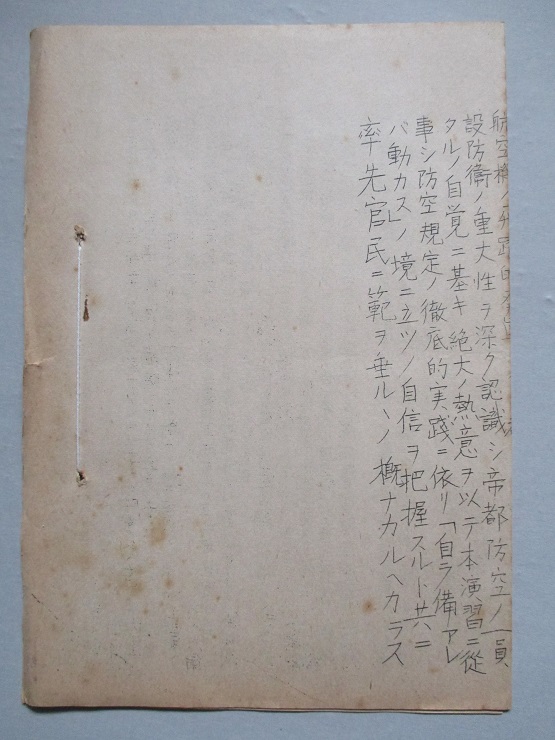 設防衛ノ重大性ヲ深ク認識シ帝都防空ノ一員
タルノ自覚ニ基キ絶大ノ熱意ヲ以テ本演習ニ従
事シ防空規定ノ徹底的実践ニ依リ「自ラ備アレ
バ動カス」ノ境ニ立ツノ自信ヲ把握スルト共ニ
率先官民ニ範ヲ垂ルヽノ概ナカルヘカラス